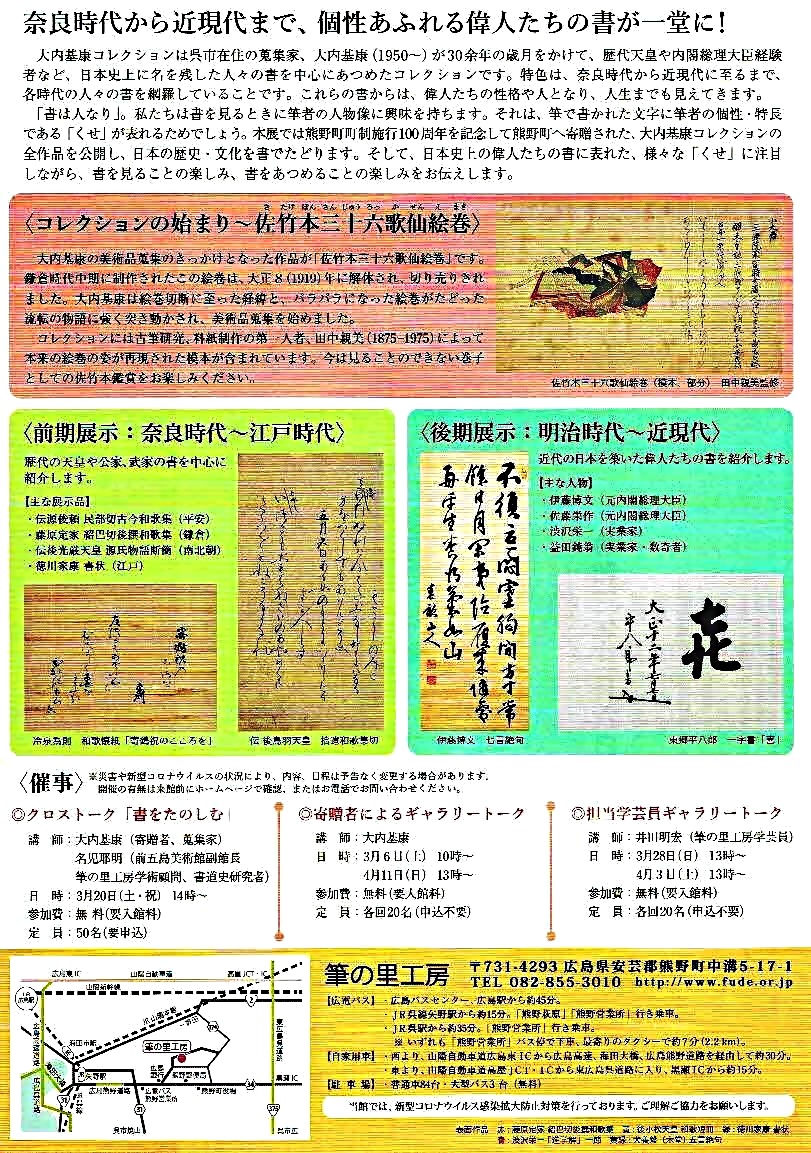 奈良時代から近現代まで、個性あふれる偉人たちの書が一堂に!
大内基康コレクションは呉市在住の蒐集家、大内基康(1950~)が30余年の歳月をかけて、歴代天皇や内閣総理大臣経験
者など、日本史上に名を残した人々の書を中心にあつめたコレクションです。特色は、奈良時代から近現代に至るまで、
各時代の人々の書を網羅していることです。これらの書からは、偉人たちの性格や人となり、人生までも見えてきます。
「書は人なり」。私たちは書を見るときに筆者の人物像に興味を持ちます。それは、筆で書かれた文字に筆者の個性・特長
である「くせ」が表れるためでしょう。本展では熊野町町制施行100周年を記念して熊野町へ寄贈された、大内基康コレクションの
全作品を公開し、日本の歴史・文化を書でたどります。そして、日本史上の偉人たちの書に表れた、様々な「くせ」に注目
しながら、書を見ることの楽しみ、書をあつめることの楽しみをお伝えします。
さたけぼんさんじゅうろっかせんえまき
〈コレクションの始まり~佐竹本三十六歌仙絵巻〉
大内基康の美術品蒐集のきっかけとなった作品が「佐竹本三十六歌仙絵巻」です。
鎌倉時代中期に制作されたこの絵巻は、大正8(1919)年に解体され、切り売りされ
ました。大内基康は絵巻切断に至った経緯と、バラバラになった絵巻がたどった
流転の物語に強く突き動かされ、美術品蒐集を始めました。
コレクションには古筆研究、料紙制作の第一人者、田中親美(1875-1975)によって
本来の絵巻の姿が再現された模本が含まれています。今は見ることのできない巻子
としての佐竹本鑑賞をお楽しみください。
佐竹本三十六歌仙絵巻(模本、部分) 田中親美監修
〈前期展示:奈良時代~江戸時代〉
歴代の天皇や公家、武家の書を中心に
紹介します。
【主な展示品】
・伝源俊頼 民部切古今和歌集(平安)
・藤原定家 紹巴切後撰和歌集(鎌倉)
・伝後光厳天皇 源氏物語断簡(南北朝)
・徳川家康 書状(江戸)
冷泉為則 和歌懐紙「寄鶴祝のこころを」
伝 後鳥羽天皇 拾遺和歌集切
〈後期展示:明治時代~近現代〉
近代の日本を築いた偉人たちの書を紹介します。
【主な人物】
・伊藤博文(元内閣総理大臣)
・佐藤栄作(元内閣総理大臣)
・渋沢栄一(実業家)
・益田鈍翁(実業家・数寄者)
伊藤博文 七言絶句
東郷平八郎 一字書「㐂」
〈催事〉
※災害や新型コロナウイルスの状況により、内容、日程は予告なく変更する場合があります。
開催の有無は来館前にホームページで確認、またはお電話でお問い合わせください。
◎クロストーク「書をたのしむ」
講 師:大内基康(寄贈者、蒐集家)
名児耶明(前五島美術館副館長
筆の里工房学術顧問、書道史研究者)
日 時:3月20日(土・祝) 14時~
参加費:無 料(要入館料)
定 員:50名(要申込)
◎寄贈者によるギャラリートーク
講 師:大内基康
日 時:3月6日(土) 10時~
4月11日(日) 13時~
参加費:無料(要入館料)
定 員:各回20名(申込不要)
◎担当学芸員ギャラリートーク
講 師:井川明宏(筆の里工房学芸員)
日 時:3月28日(日) 13時~
4月3日(土) 13時~
参加費:無料(要入館料)
定 員:各回20名(申込不要)
広島東IC
山陽自動車道
高屋JCT・IC
山陽新幹線
JR広島駅
JR山陽本線
海田市駅
筆の里工房
矢野駅
熊野郵便局
広島熊野道路
広電バス
熊野営業所
熊野町役場
黒瀬IC
呉市焼山
呉市広
2
31
34
375
筆の里工房
〒731-4293 広島県安芸郡熊野町中溝5-17-1
TEL 082-855-3010 http://www.fude.or.jp
【広電バス】・広島バスセンター、広島駅から約45分。
・JR呉線矢野駅から約15分。「熊野萩原」「熊野営業所」行き乗車。
・JR呉駅から約35分。「熊野営業所」行き乗車。
※ いずれも「熊野営業所」バス停で下車、最寄りのタクシーで約7分(2.2km)。
【自家用車】・西より、山陽自動車道広島東ICから広島高速、海田大橋、広島熊野道路を経由して約30分。
・東より、山陽自動車道高屋JCT・ICから東広島呉道路に入り、黒瀬ICから約15分。
【駐 車 場】・普通車84台・大型バス3台(無料)
当館では、新型コロナウイルス感染拡大防止対策を行っております。ご理解ご協力をお願いします。